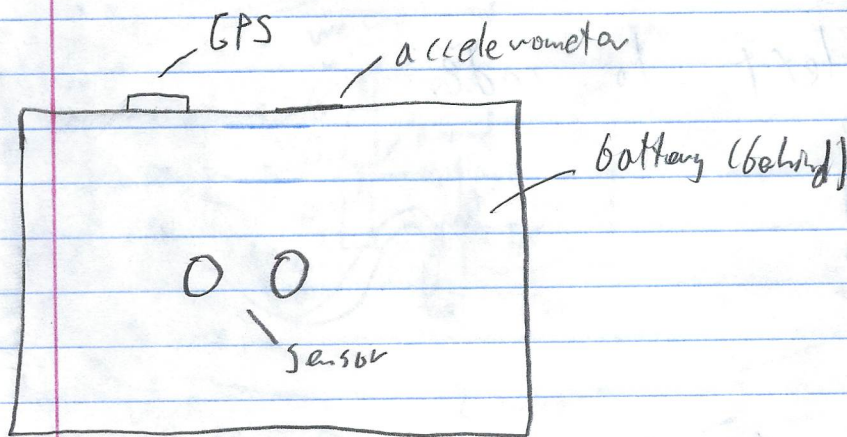 GPS
accelerometer
battery (behind)
sensor